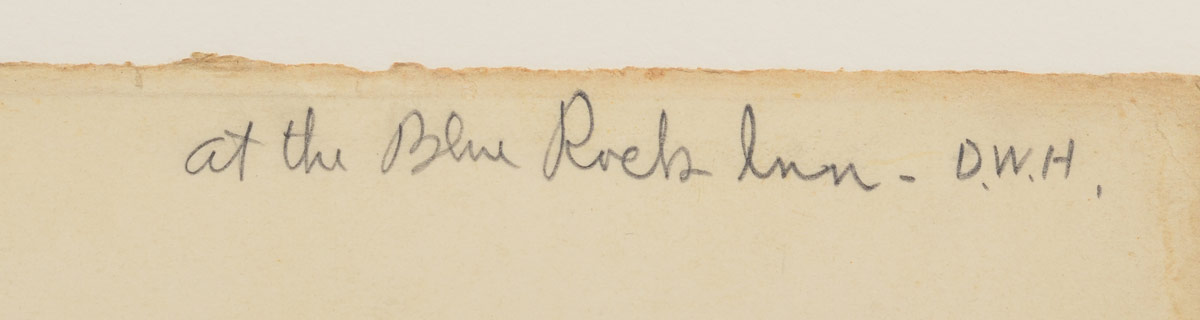 at the Blue Rock Inn - D.W.H.